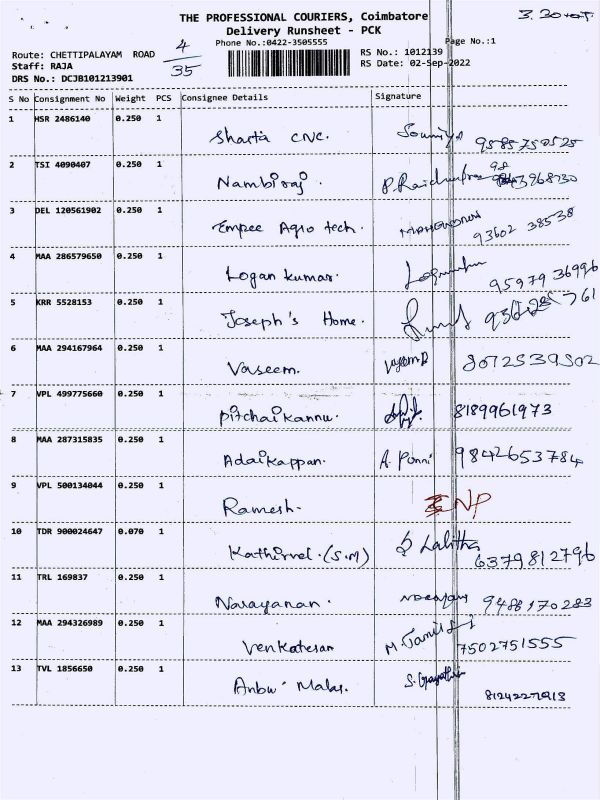 THE PROFESSIONAL COURIERS, Coimbatore
3.30
Delivery Runsheet - PCK
Phone No.:0422-3505555
Page No.:1
Route: CHETTIPALAYAM ROAD
4
35
RS No.: 1012139
Staff: RAJA
RS Date: 02-Sep-2022
DRS No.: DCJB101213901
S No Consignment No Weight PCS Consignee Details Signature
1 HSR 2486140 0.250 1
Sharta CNC. Soumiya
2 TSI 4090407 0.250 1
Nambiraj.
3 DEL 120561902 0.250 1
Empee Agro tech. 93602 38538
4 MAA 286579650 0.250 1
Logan kumar. 95979 36996
5 KRR 5528153 0.250 1
Joseph's Home.
6 MAA 294167964 0.250 1
Vaseem. 8072539502
7 VPL 499775660 0.250 1
Pitchaikannu. 8189961973
8 MAA 287315835 0.250 1
Adaikappan. A. Ponni 9842653784
9 VPL 500134044 0.250 1
Ramesh. NP
10 TDR 900024647 0.070 1
Kathirvel.(S.M) Lalitha 6379812796
11 TRL 169837 0.250 1
Narayanan. 9488170283
12 MAA 294326989 0.250 1
Venkatesan 7502751555
13 TVL 1856650 0.250 1
Anbu Malar. S. Gayathri